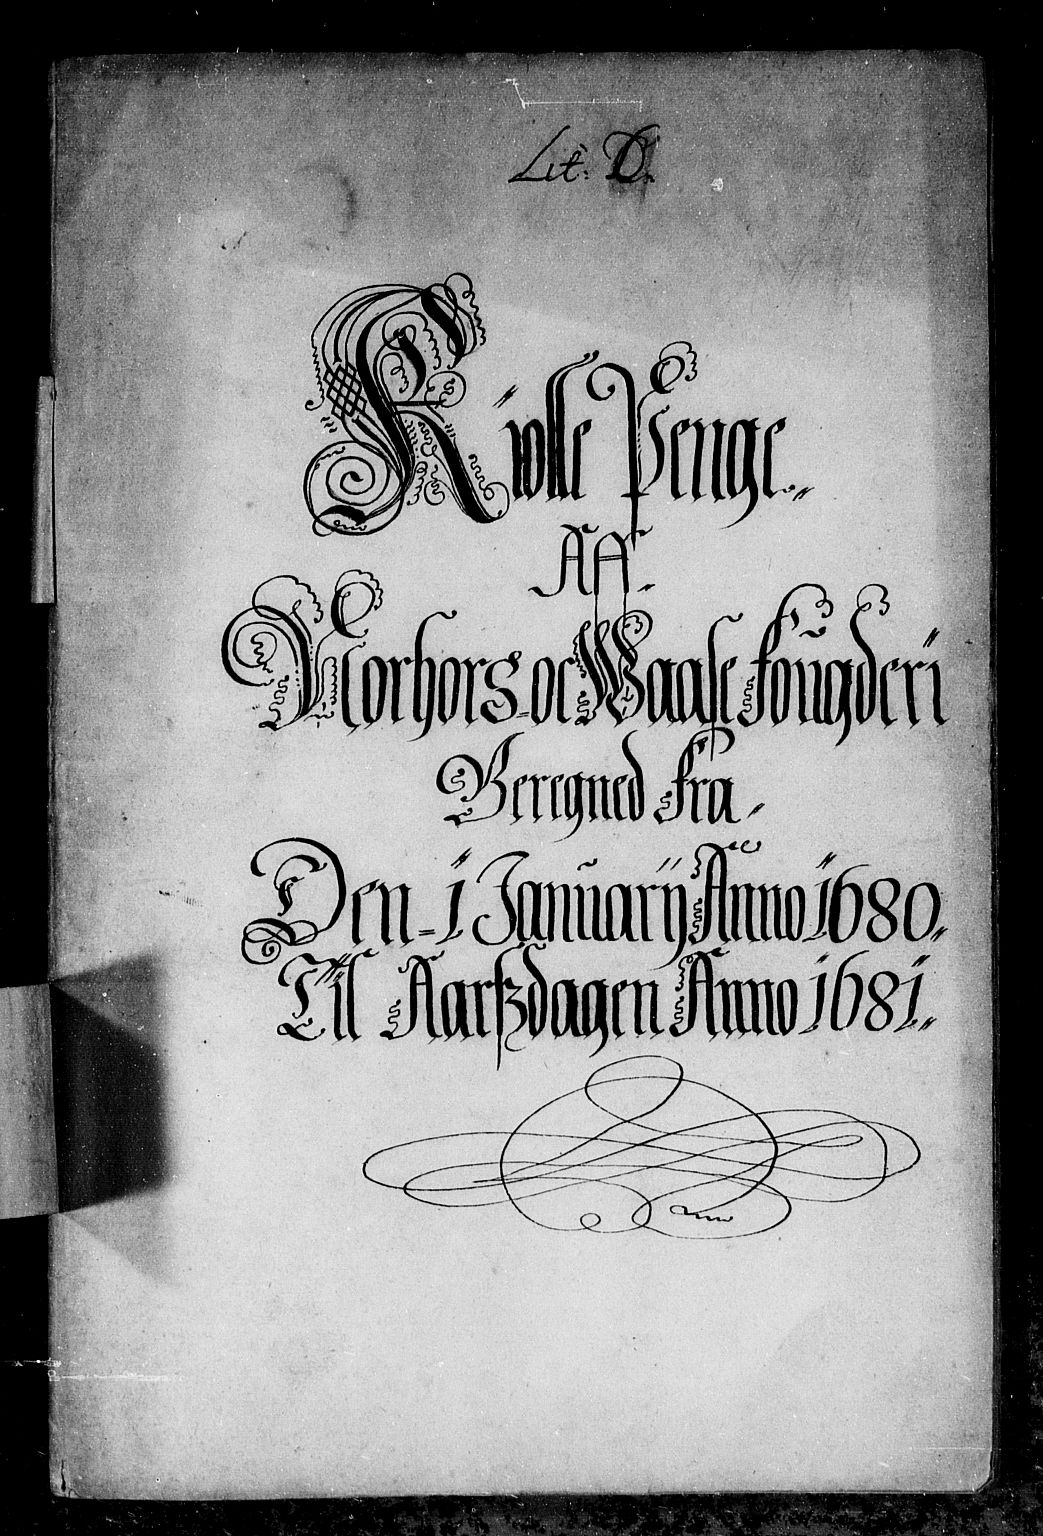 Lit: D.
Kiølle Penge.
AA.
Norhors oc Waase fougderi
Beregned fra
Den 1 Januarij Anno 1680.
Til Aarßdagen Anno 1681.